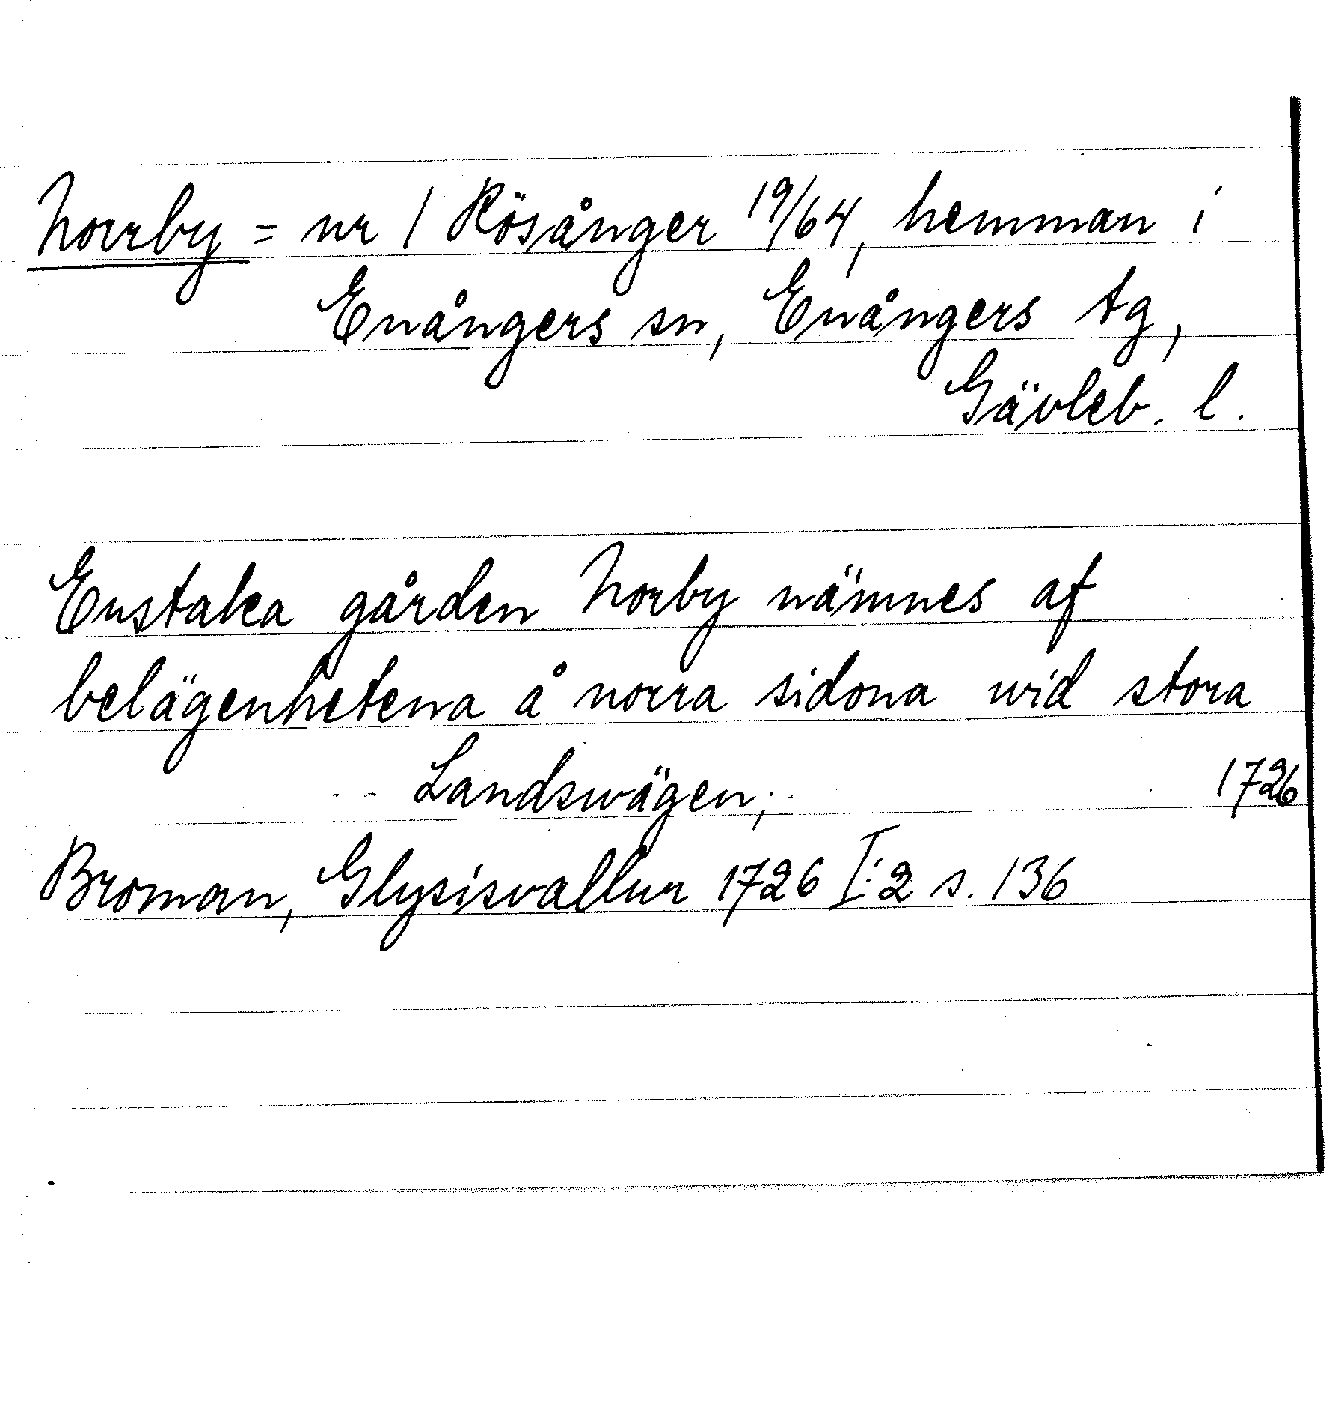 Norrby = nr 1 Rösånger 19/64, hemman i
Enångers sn, Enångers tg,
Gävleb. l.
Enstaka gården Norby nämnes af
belägenhetena å norra sidona wid stora
Landswägen; 1726
Broman, Glysisvallur 1726 I:2 s. 136